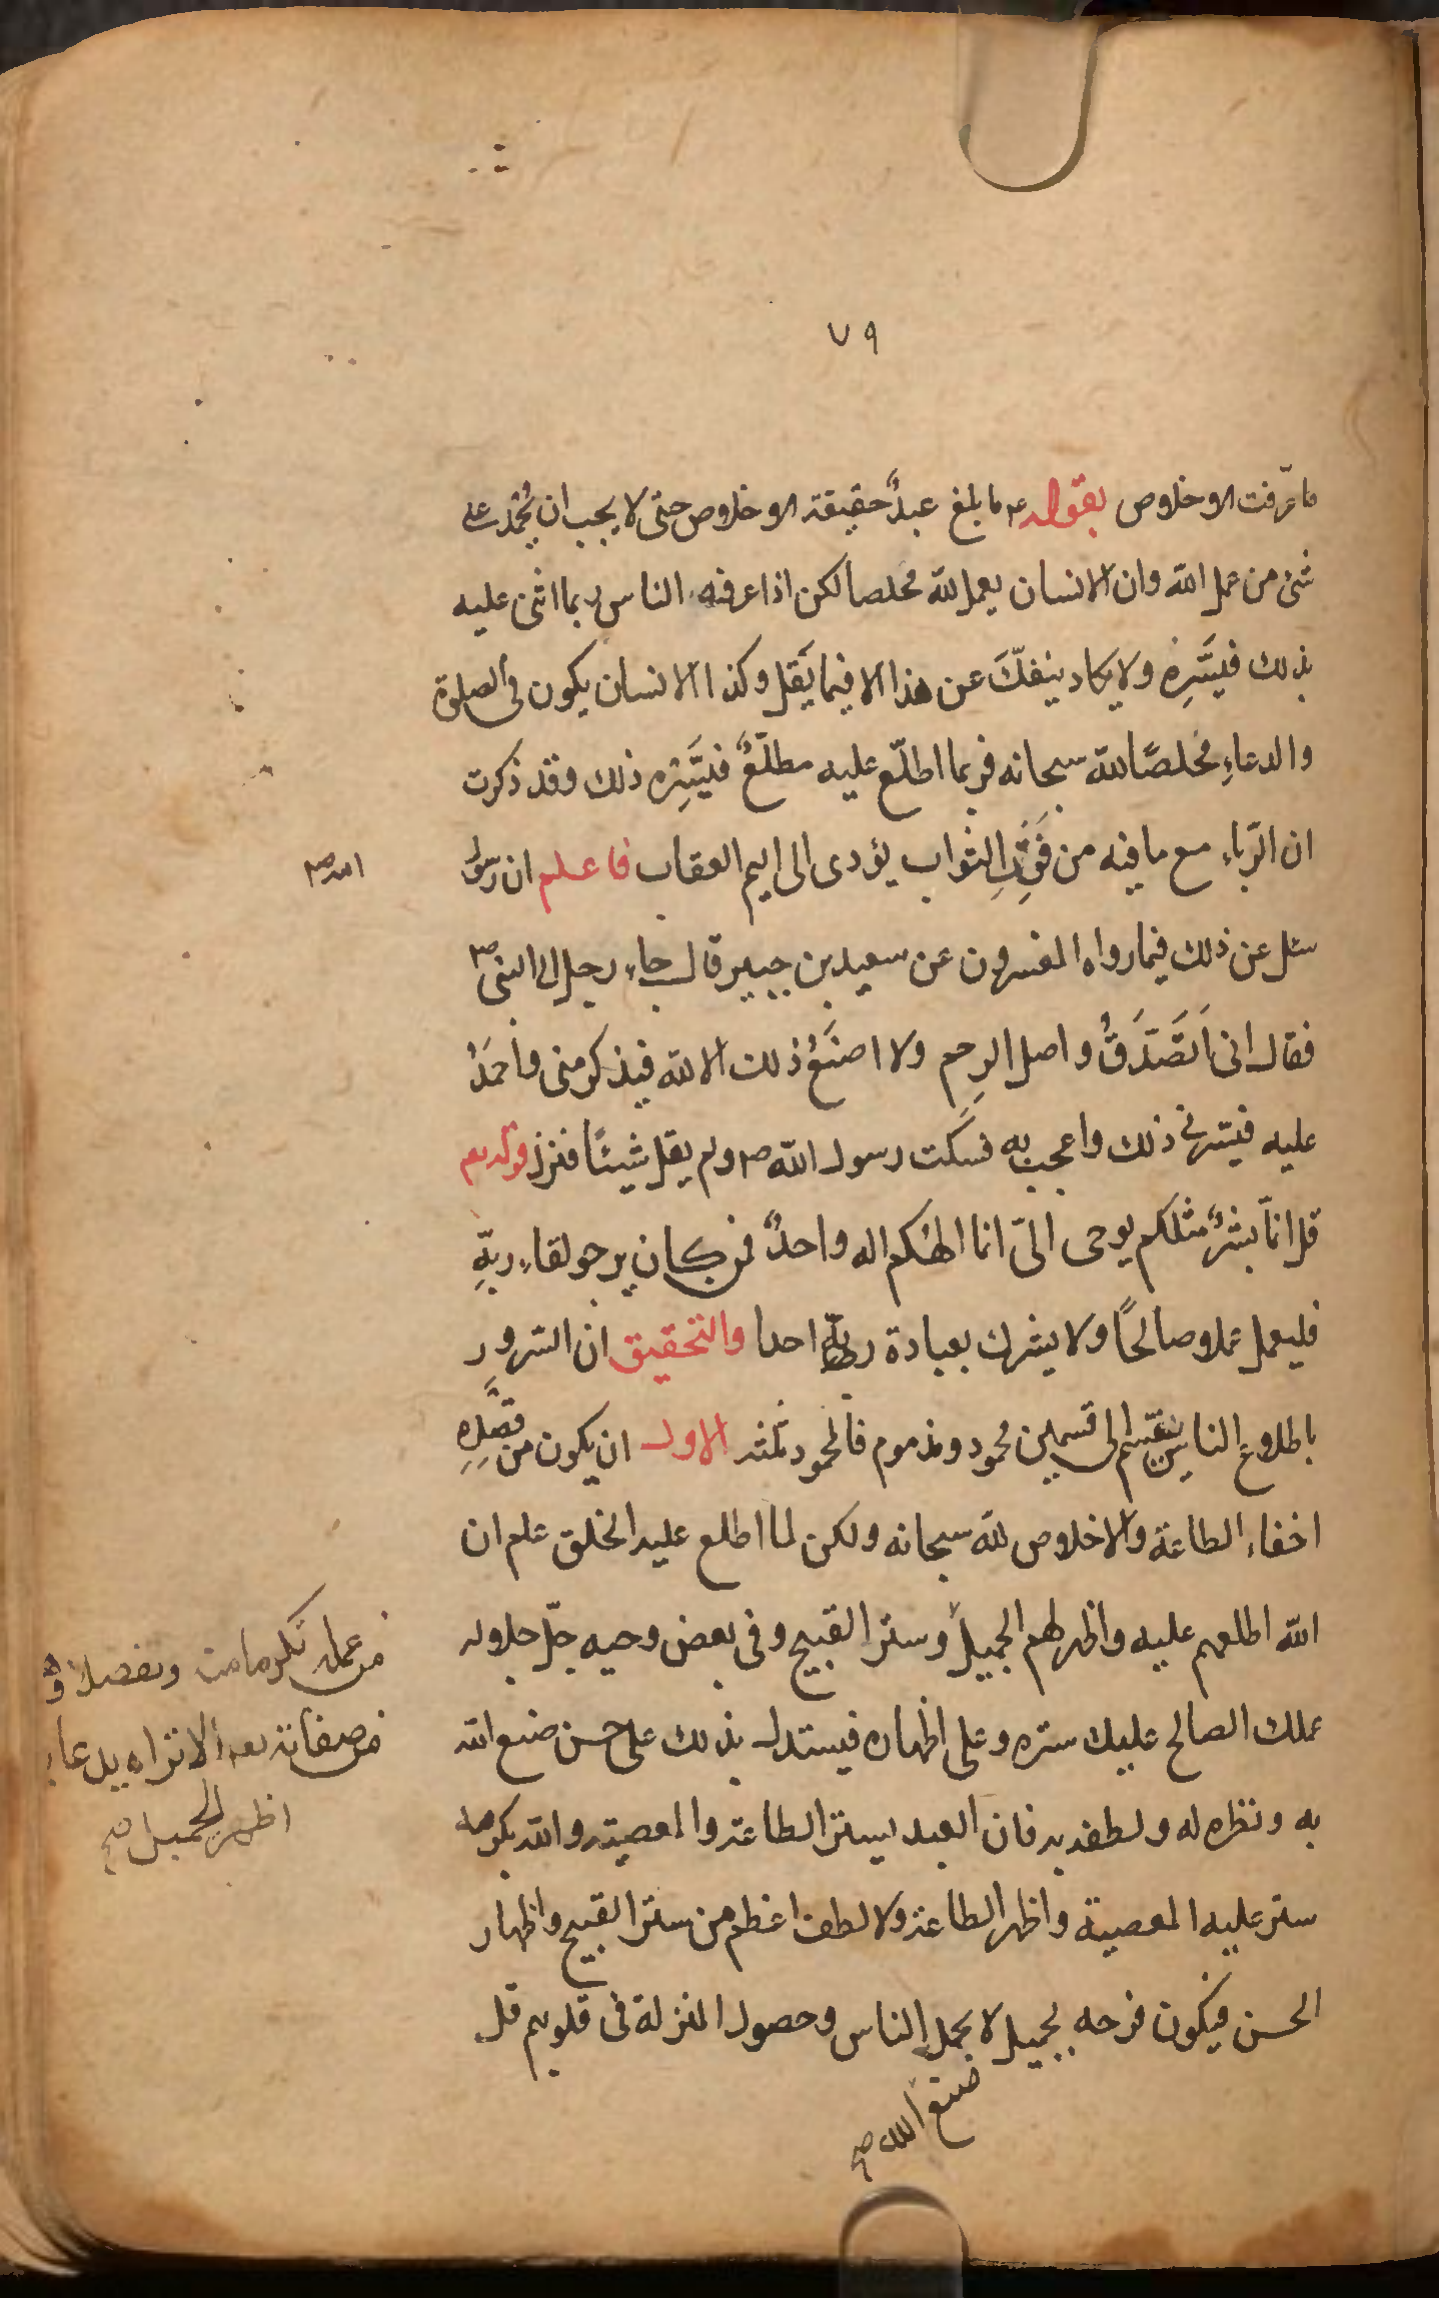 ٧٩
ما عرّفت الاخلاص بقوله ع ما بلغ عبدٌ حقيقة الاخلاص حتى لا يحب ان يُحمد على
شئ من عمل الله وان الانسان يعمل لله مخلصا لكن اذا عرفه الناس ربما اثنى عليه
بذلك فيَسُرِه ولا يكاد ينفكّ عن هذا الا فيما يَقل وكذا الانسان يكون في الصلوة
والدعاءِ مخلصًا لله سبحانه فربما اطلّع عليه مطلّعٌ فيَسُرِه ذلك وقد ذكرت
ان الرّياء مع ما فيه من فَوتِ الثواب يؤدى الى اليم العقاب فاعلم ان رسول
الله ص
سئل عن ذلك فيما رواه المفسرون عن سعيد بن جبير قال جاء رجل الى النبى ص
فقال انى اَتَصَدَّقُ واصل الرحم ولا اصنَعُ ذلك الا لله فيذكر منى واُحمَدُ
عليه فيسُرنى ذلك واعجب به فسكت رسول الله ص ولم يقل شيئًا فنزل قوله تعم
قل انما بشرٌ مثلكم يوحى الىّ انما الهكم اله واحدٌ فمن كان يرجو لقاء ربّهِ
فليعمل عملا صالحًا ولا يشرك بعبادة ربّه احدا والتحقيق ان السرور
باطلاع الناس ينقسم الى قسمين محمود ومذموم فالمحمود ثلثة الاول ان يكون من قصدِهِ
اخفاء الطاعة والاخلاص لله سبحانه ولكن لما اطلع عليه الخلق علم ان
الله اطلعهم عليه واظهر لهم الجميل وستر القبيح وفى بعض وحيه جلّ جلاله
من عمله تكرما منه وتفضلا
من صفاته تعم الا تراه يدعا
اظهر الجميل صح
عملك الصالح عليك ستره وعلى اظهاره فيستدل بذلك على حسن صنع الله
به ونظره له ولطفه به فان العبد يستر الطاعة والمعصية والله بكرمه
ستر عليه المعصية واظهر الطاعة ولا لطف اعظم من ستر القبيح واظهار
الحسن فيكون فرحه بجميل لا بحمد الناس وحصول المنزلة فى قلوبهم قل
صنع الله صح